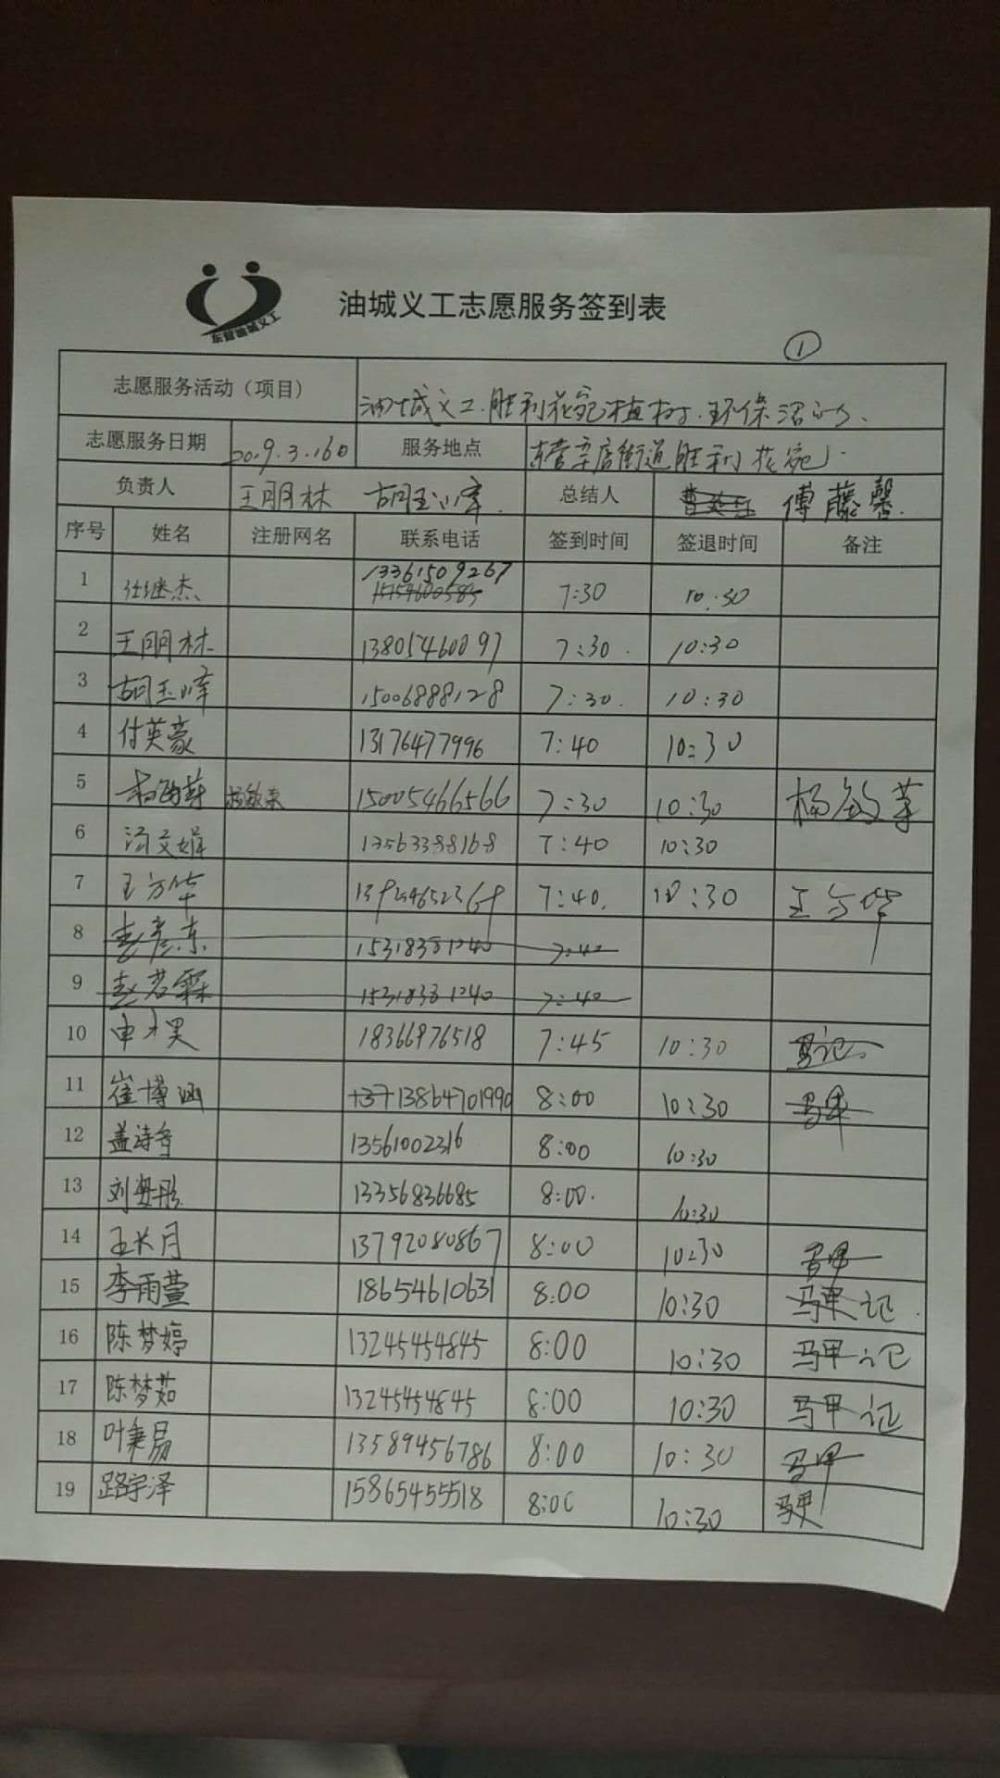 东营油城义工
油城义工志愿服务签到表
①
志愿服务活动（项目） 油城义工.胜利花苑植树.环保活动.
志愿服务日期 2019.3.16日 服务地点 东营辛店街道胜利花苑.
负责人 王明林 胡玉峰. 总结人 傅藤馨.
序号 姓名 注册网名 联系电话 签到时间 签退时间 备注
1 任继杰 13361509267 7:30 10:30
2 王明林 13805460097 7:30 10:30
3 胡玉峰 15006888128 7:30 10:30
4 付英豪 13176477996 7:40 10:30
5 杨敏莘 15005466566 7:30 10:30 杨敏莘
6 13563388168 7:40 10:30
7 王方华 7:40 10:30 王方华
8 赵彦东 15318381240 7:40
9 赵若霖 15318381240 7:40
10 申昊 18366976518 7:45 10:30
11 崔博涵 13864701990 8:00 10:30 马甲
12 盖诗 13561002316 8:00 10:30
13 刘 13356836685 8:00 10:30
14 王长月 13792080867 8:00 10:30 马甲
15 李雨萱 18654610631 8:00 10:30 马甲记
16 陈梦婷 13245454845 8:00 10:30 马甲记
17 陈梦茹 13245454845 8:00 10:30 马甲记
18 叶秉易 13589456786 8:00 10:30 马甲
19 路宇泽 15865455518 8:00 10:30 马甲